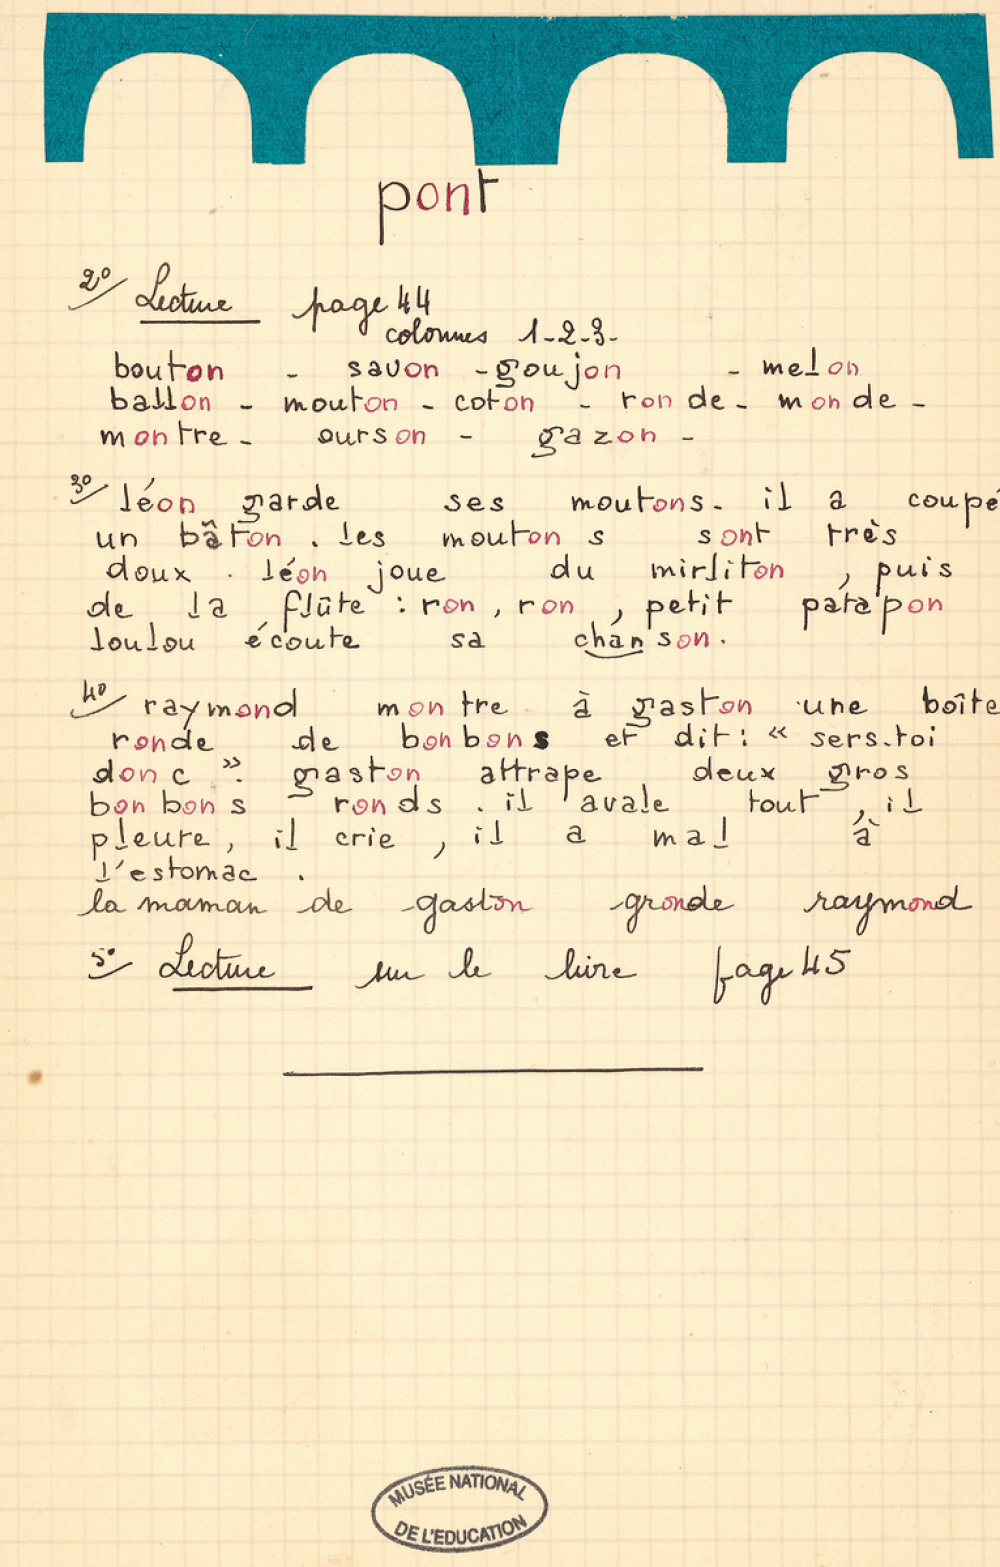 pont
2º/ Lecture page 44
colonnes 1-2-3-
bouton - savon - goujon - melon
ballon - mouton - coton - ronde - monde -
montre - ourson - gazon -
3º/ léon garde ses moutons. il a coupé
un bâton. les moutons sont très
doux. léon joue du mirliton, puis
de la flûte : ron, ron, petit patapon
loulou écoute sa chanson.
4º/ raymond montre à gaston une boîte
ronde de bonbons et dit : « sers-toi
donc ». gaston attrape deux gros
bonbons ronds. il avale tout, il
pleure, il crie, il a mal à
l'estomac.
la maman de gaston gronde raymond
5º/ Lecture sur le livre page 45
MUSÉE NATIONAL
DE L'EDUCATION